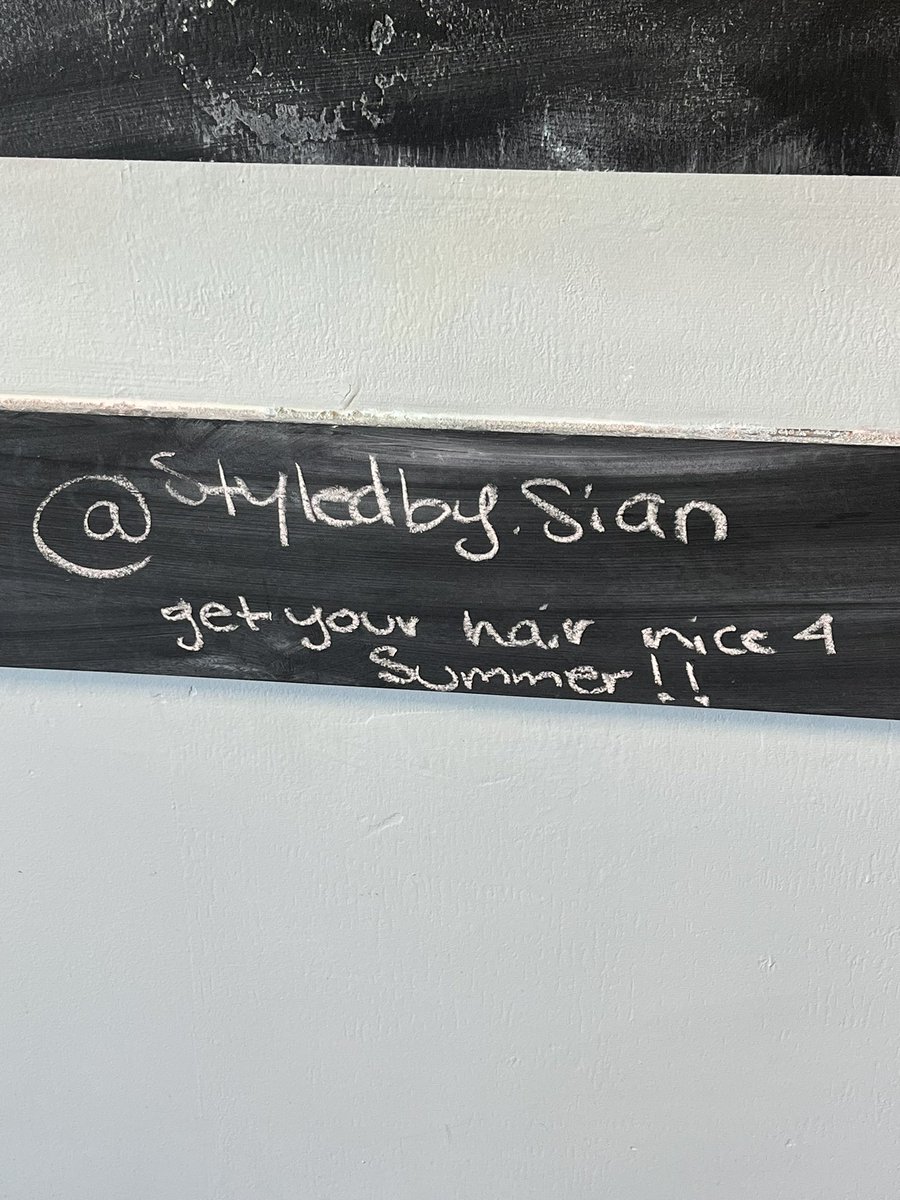 @Styledby.Sian
get your hair nice 4
Summer!!